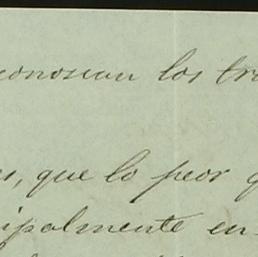 conoscan los tra
s, que lo peor q
ipalmente en-